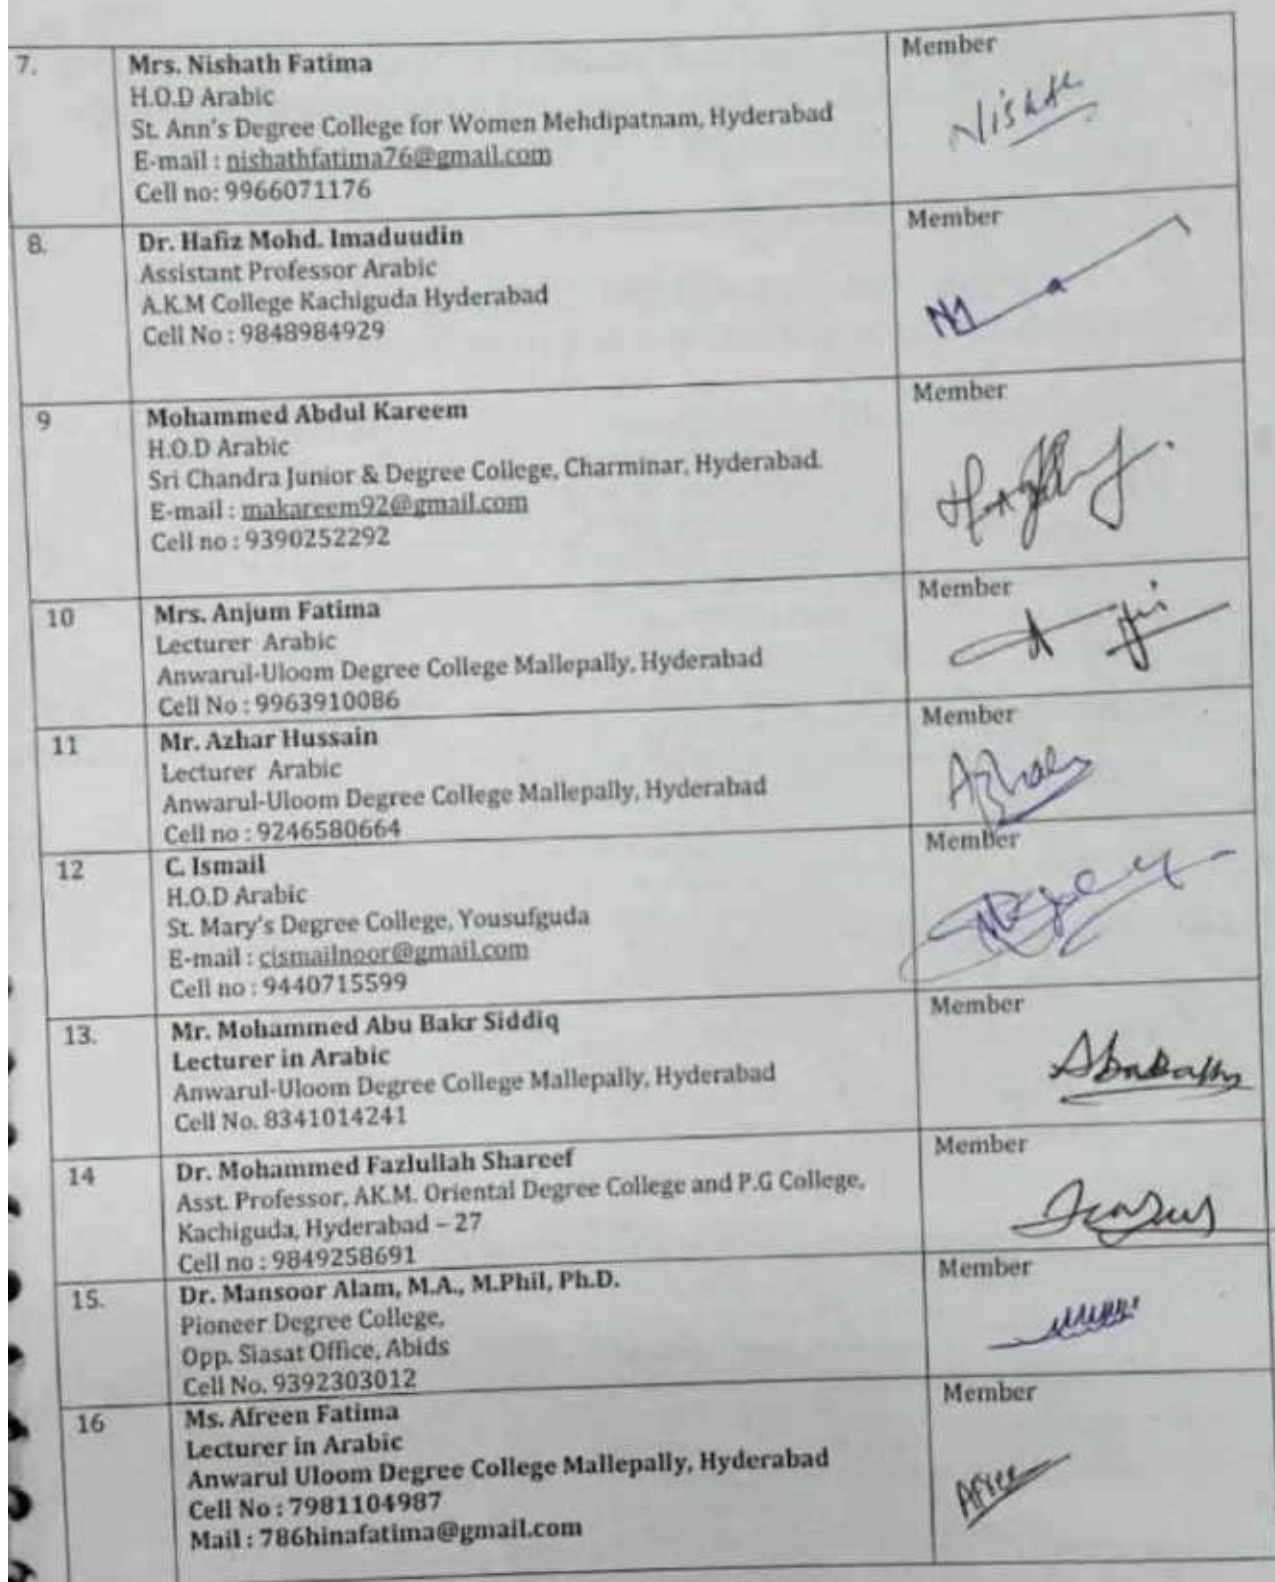 7.
Mrs. Nishath Fatima
H.O.D Arabic
St. Ann's Degree College for Women Mehdipatnam, Hyderabad
E-mail : nishathfatima76@gmail.com
Cell no: 9966071176
Member
8.
Dr. Hafiz Mohd. Imaduudin
Assistant Professor Arabic
A.K.M College Kachiguda Hyderabad
Cell No : 9848984929
Member
9
Mohammed Abdul Kareem
H.O.D Arabic
Sri Chandra Junior & Degree College, Charminar, Hyderabad.
E-mail : makareem92@gmail.com
Cell no : 9390252292
Member
10
Mrs. Anjum Fatima
Lecturer Arabic
Anwarul-Uloom Degree College Mallepally, Hyderabad
Cell No : 9963910086
Member
11
Mr. Azhar Hussain
Lecturer Arabic
Anwarul-Uloom Degree College Mallepally, Hyderabad
Cell no : 9246580664
Member
Azhar
12
C. Ismail
H.O.D Arabic
St. Mary's Degree College, Yousufguda
E-mail : cismailnoor@gmail.com
Cell no : 9440715599
Member
13.
Mr. Mohammed Abu Bakr Siddiq
Lecturer in Arabic
Anwarul-Uloom Degree College Mallepally, Hyderabad
Cell No. 8341014241
Member
14
Dr. Mohammed Fazlullah Shareef
Asst. Professor, AK.M. Oriental Degree College and P.G College,
Kachiguda, Hyderabad – 27
Cell no : 9849258691
Member
15.
Dr. Mansoor Alam, M.A., M.Phil, Ph.D.
Pioneer Degree College,
Opp. Siasat Office, Abids
Cell No. 9392303012
Member
16
Ms. Afreen Fatima
Lecturer in Arabic
Anwarul Uloom Degree College Mallepally, Hyderabad
Cell No : 7981104987
Mail : 786hinafatima@gmail.com
Member